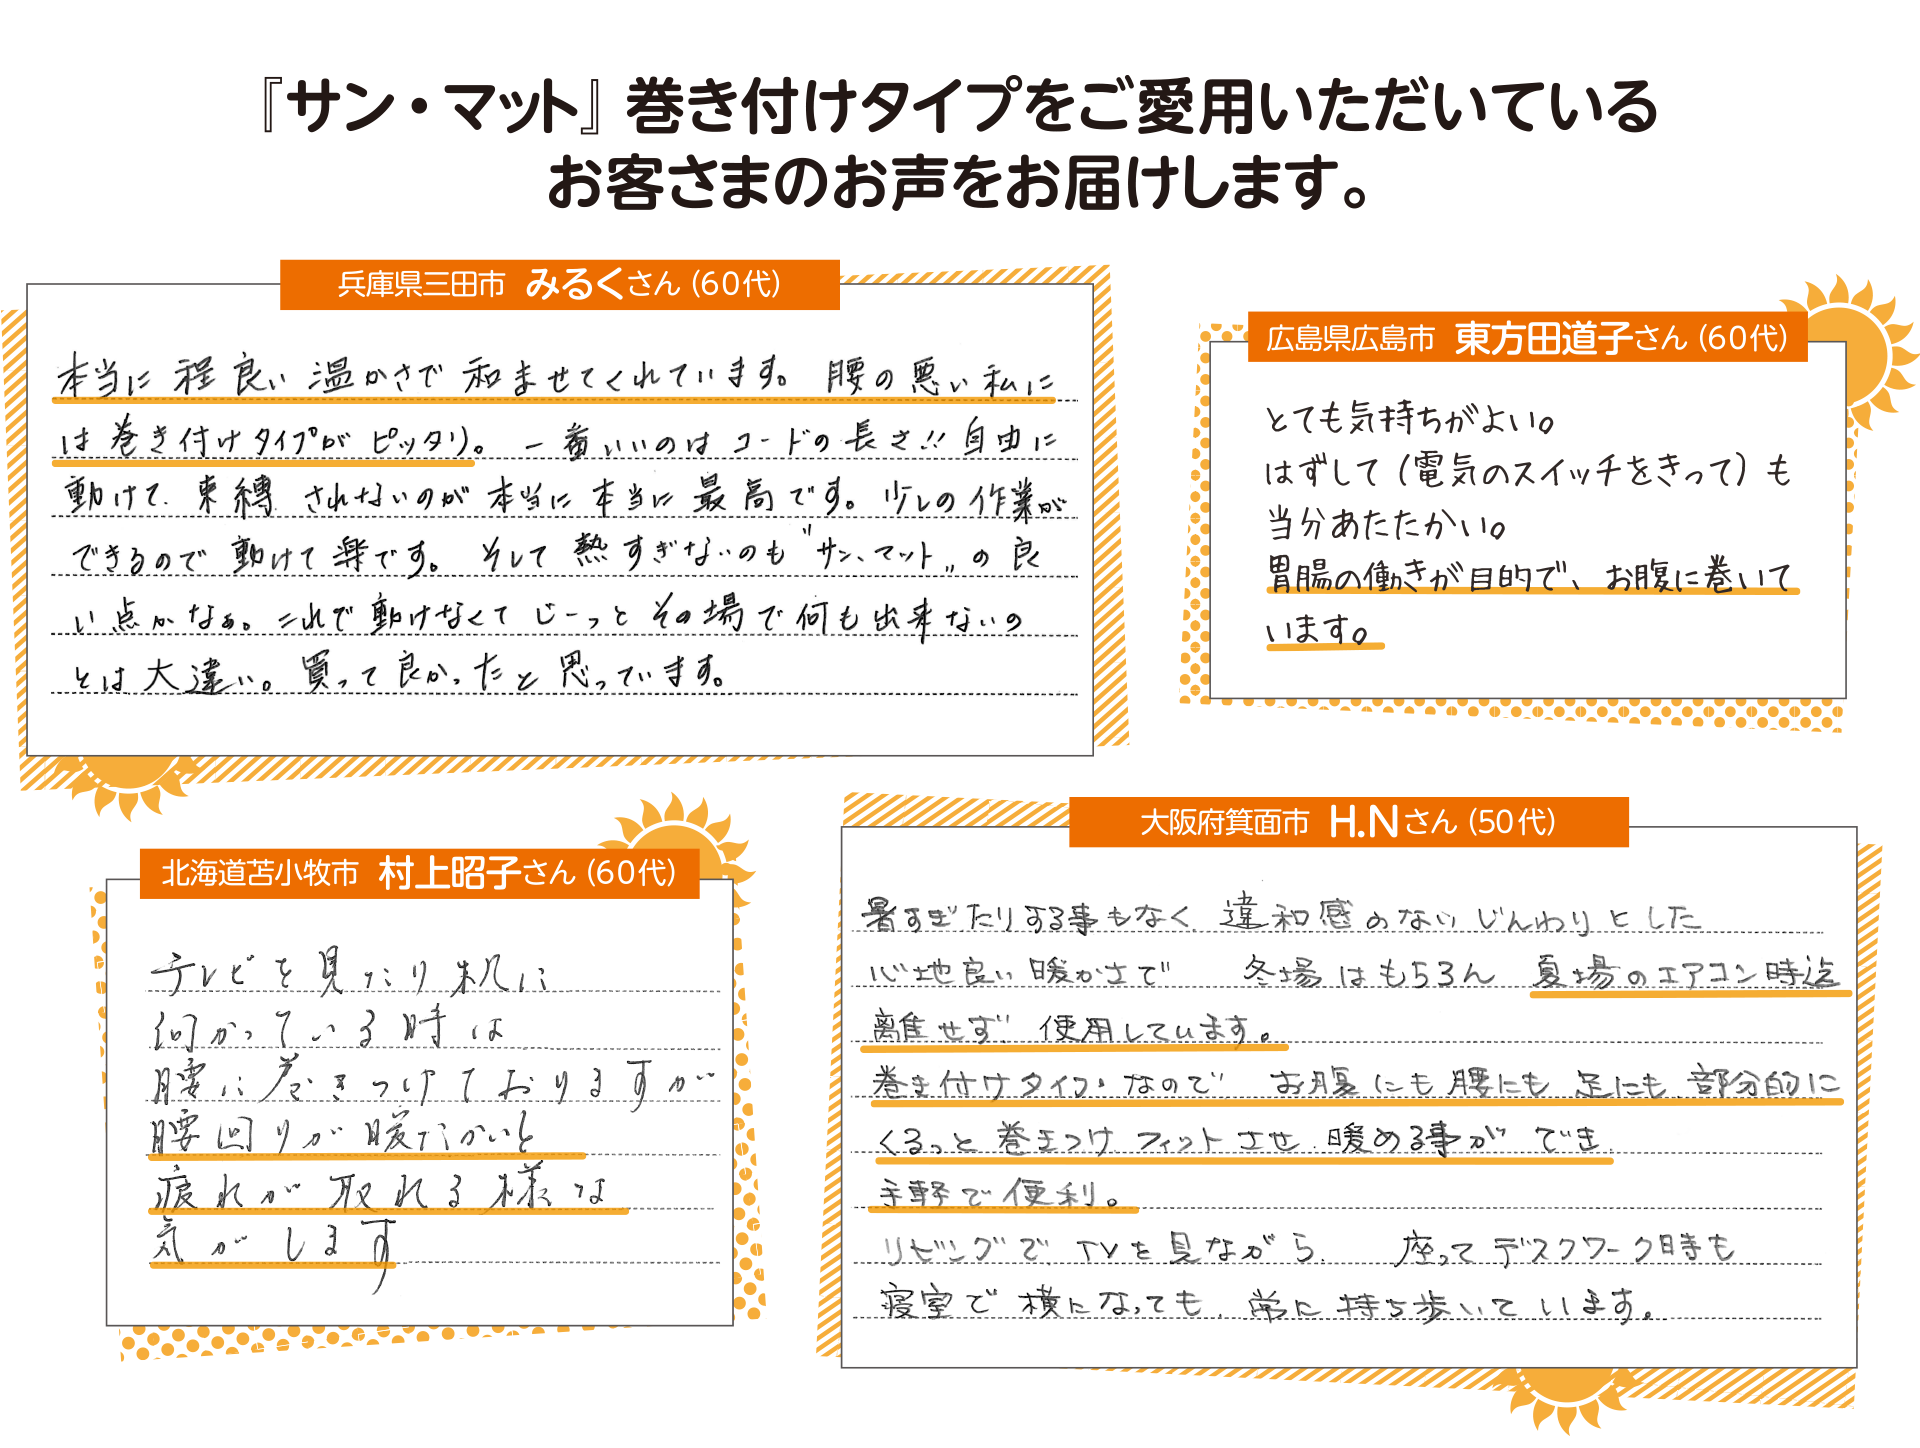 『サン・マット』巻き付けタイプをご愛用いただいている
お客さまのお声をお届けします。
兵庫県三田市 みるくさん（60代）
本当に程良い温かさで和ませてくれています。腰の悪い私に
は巻き付けタイプがピッタリ。一番いいのはコードの長さ!!自由に
動けて、束縛されないのが本当に本当に最高です。少しの作業が
できるので動けて楽です。そして熱すぎないのも〝サン、マット〟の良
い点かなぁ。これで動けなくてじーっとその場で何も出来ないの
とは大違い。買って良かったと思っています。
広島県広島市 東方田道子さん（60代）
とても気持ちがよい。
はずして（電気のスイッチをきって）も
当分あたたかい。
胃腸の働きが目的で、お腹に巻いて
います。
北海道苫小牧市 村上昭子さん（60代）
テレビを見たり机に
向かっている時は
腰に巻きつけておりますが
腰回りが暖たかいと
疲れが取れる様な
気がします
大阪府箕面市 H.Nさん（50代）
暑すぎたりする事もなく、違和感のないじんわりとした
心地良い暖かさで 冬場はもちろん 夏場のエアコン時迄
離せず、使用しています。
巻き付けタイプなので お腹にも腰にも足にも、部分的に
くるっと巻きつけ、フィットさせ、暖める事ができ、
手軽で便利。
リビングで、TVを見ながら、 座ってデスクワーク時も
寝室で横になっても、常に持ち歩いています。